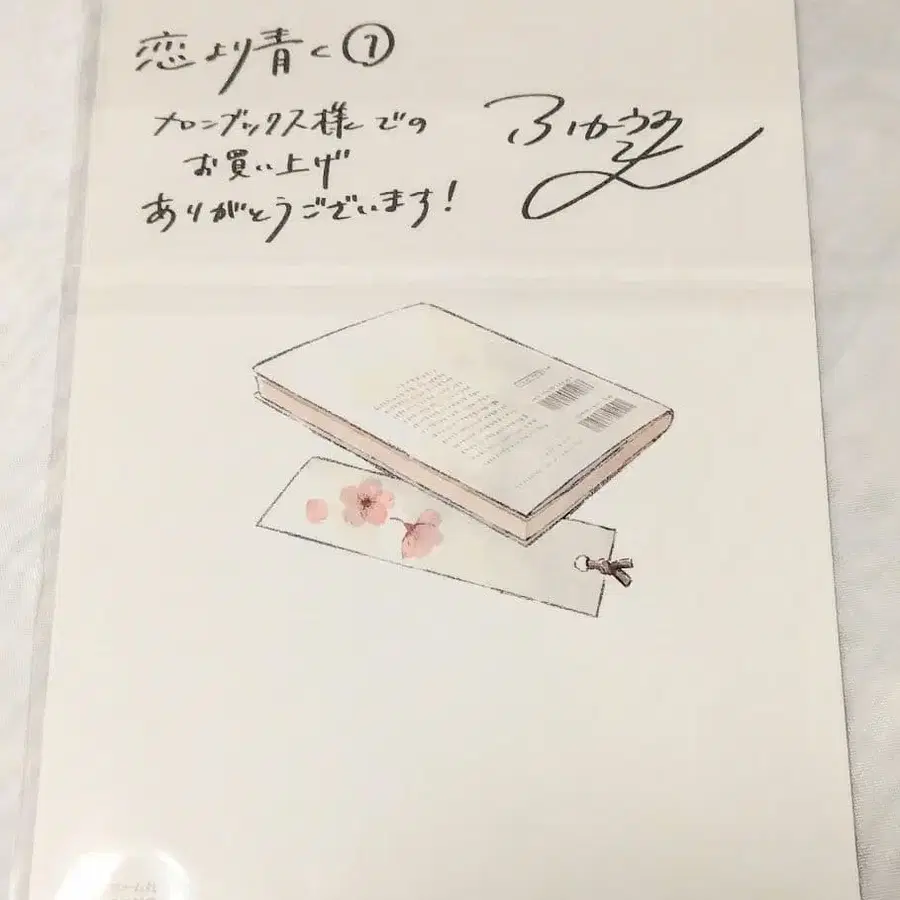 恋より青く①
メロンブックス様での
お買い上げ
ありがとうございます!
ふかうみ